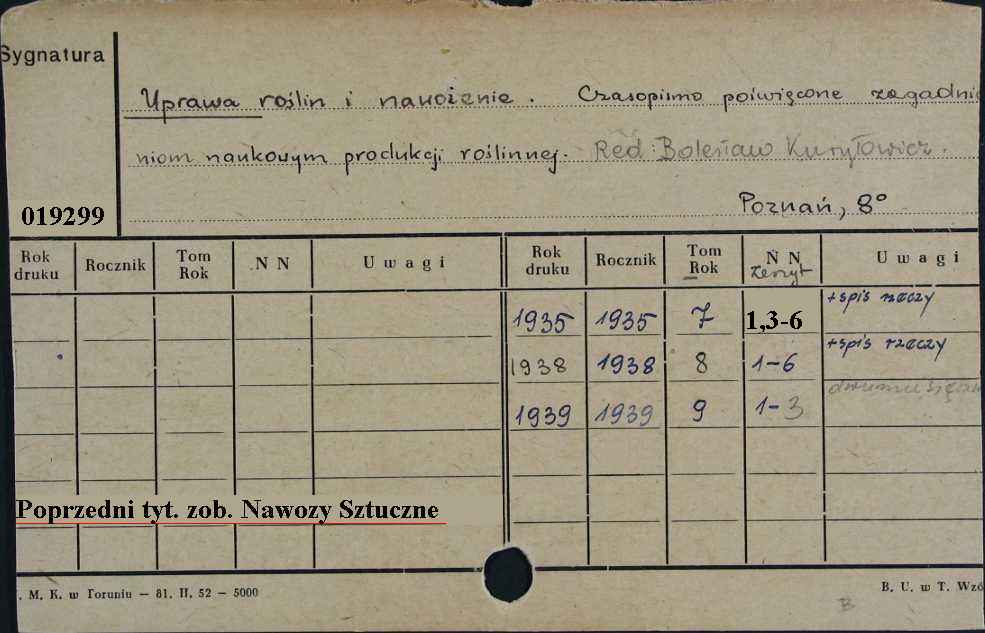 Sygnatura
Uprawa roślin i nawożenie. Czasopismo poświęcone zagadnie
niom naukowym produkcji roślinnej. Red. Bolesław Kuryłowicz.
019299
Poznań, 8°
Rok druku Rocznik Tom Rok N N Uwagi Rok druku Rocznik Tom Rok N N zeszyt Uwagi
1935 1935 7 1,3-6 +spis rzeczy
1938 1938 8 1-6 +spis rzeczy
1939 1939 9 1-3
Poprzedni tyt. zob. Nawozy Sztuczne
. M. K. w Toruniu — 81. II. 52 — 5000
B. U. w T. Wzó
B